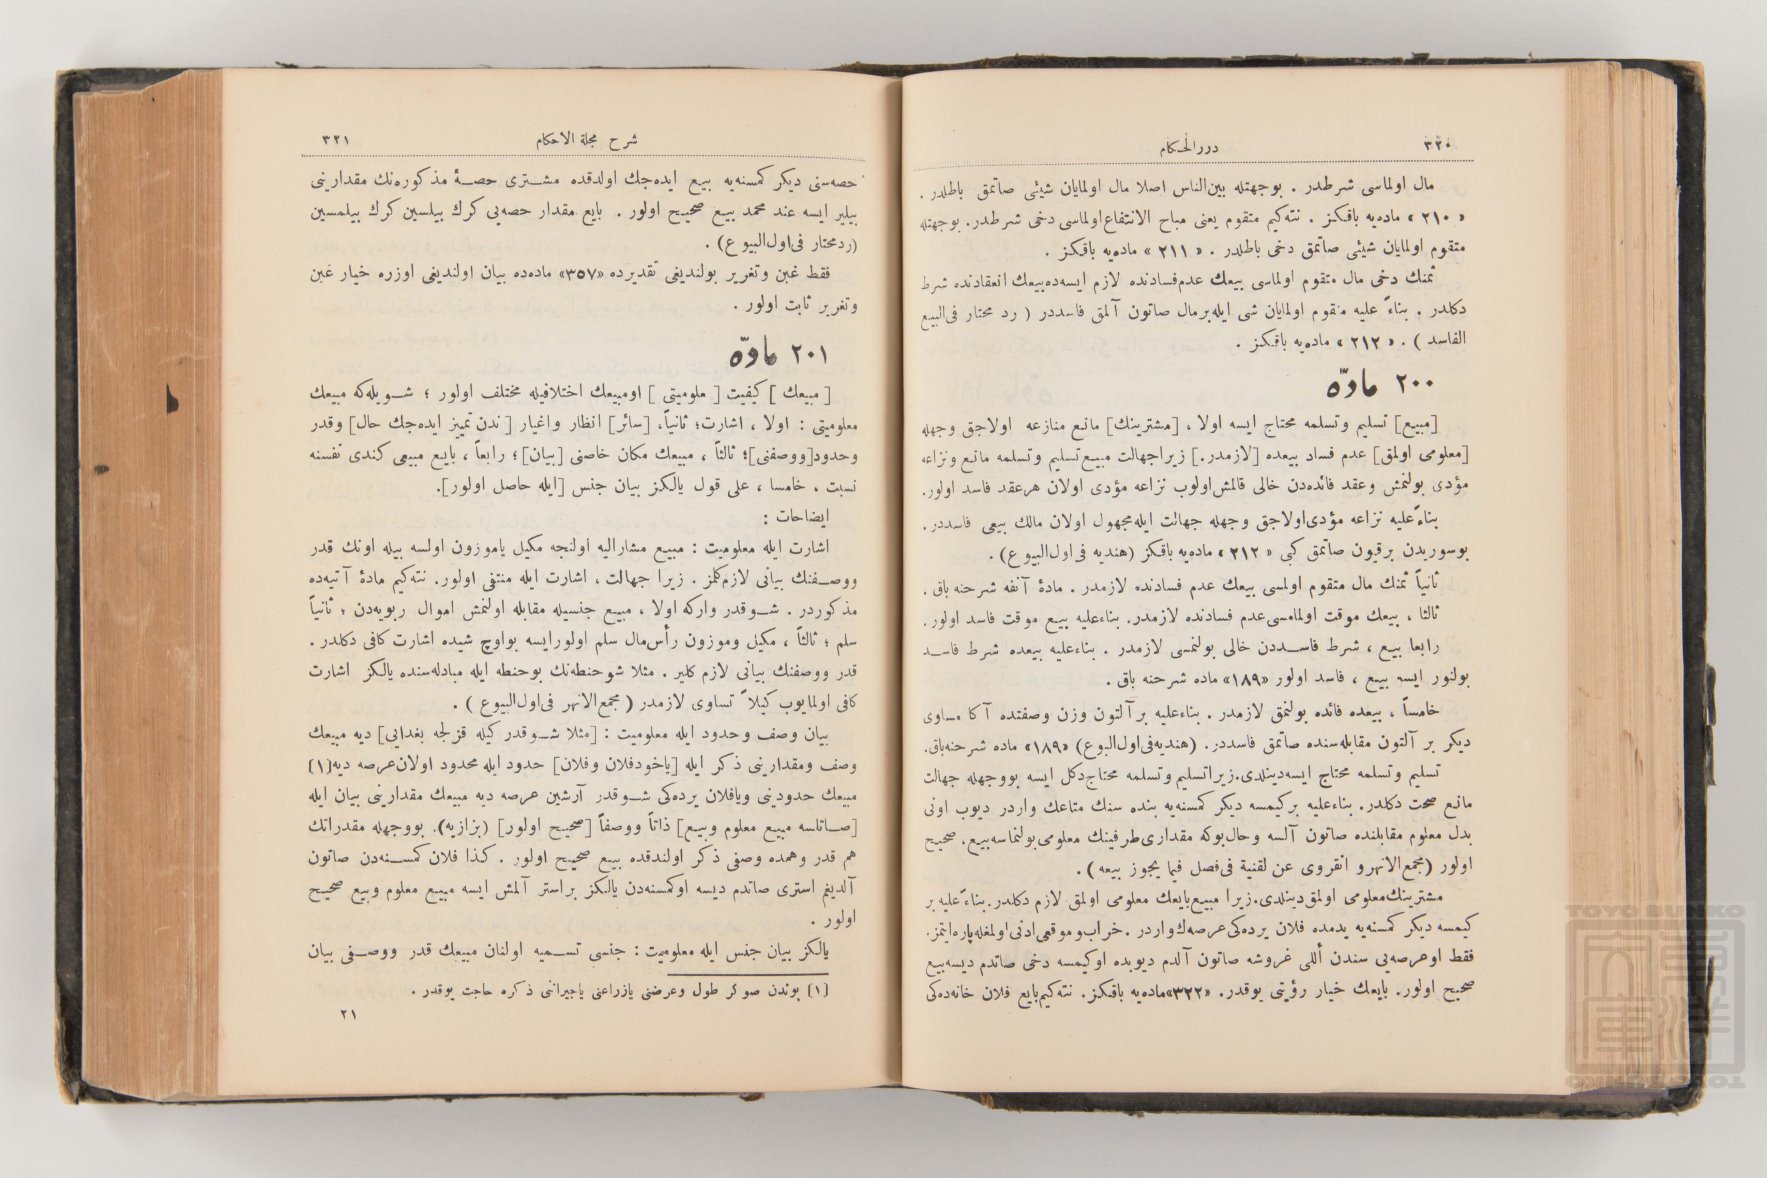 ٣٢٠
دررالحكام
مال اولماسى شرطدر . بوجهتله بين‌الناس اصلا مال اولمايان شيئى صاتمق باطلدر .
« ٢١٠ » ماده‌يه باقكز . نته‌كيم متقوم يعنى مباح الانتفاع اولماسى دخى شرطدر. بوجهتله
متقوم اولمايان شيئى صاتمق دخى باطلدر . « ٢١١ » ماده‌يه باقكز .
ثمنك دخى مال متقوم اولماسى بيعك عدم فسادنده لازم ايسه‌ده بيعك انعقادنده شرط
دكلدر . بناءً عليه متقوم اولمايان شى ايله برمال صاتون آلمق فاسددر ( رد محتار فى‌البيع
الفاسد ) . « ٢١٢ » ماده‌يه باقكز .
٢٠٠ مادّه
[مبيع] تسليم وتسلمه محتاج ايسه اولا ، [مشترينك] مانع منازعه اولاجق وجهله
[معلومى اولمق] عدم فساد بيعده [لازمدر.] زيرا جهالت مبيع تسليم وتسلمه مانع ونزاعه
مؤدى بولنمش وعقد فائده‌دن خالى قالمش اولوب نزاعه مؤدى اولان هر عقد فاسد اولور.
بناءً عليه نزاعه مؤدى اولاجق وجهله جهالت ايله مجهول اولان مالك بيعى فاسددر .
بو سوريدن بر قيون صاتمق كبى « ٢١٢ » ماده‌يه باقكز (هنديه فى اول‌البيوع) .
ثانياً ثمنك مال متقوم اولمسى بيعك عدم فسادنده لازمدر . مادۀ آنفه شرحنه باق .
ثالثا ، بيعك موقت اولمامسى عدم فسادنده لازمدر. بناءعليه بيع موقت فاسد اولور.
رابعا بيع ، شرط فاسددن خالى بولنمسى لازمدر . بناءعليه بيعده شرط فاسد
بولنور ايسه بيع ، فاسد اولور «١٨٩» ماده شرحنه باق .
خامساً ، بيعده فائده بولنمق لازمدر . بناءعليه بر آلتون وزن وصفتده آكا مساوى
ديكر بر آلتون مقابله‌سنده صاتمق فاسددر. (هنديه فى‌اول‌البيوع) «١٨٩» ماده شرحنه باق.
تسليم وتسلمه محتاج ايسه دينلدى. زيرا تسليم وتسلمه محتاج دكل ايسه بووجهله جهالت
مانع صحت دكلدر. بناءعليه بر كيمسه ديكر كمسنه‌يه بنده سنك متاعك واردر ديوب اونى
بدل معلوم مقابلنده صاتون آلسه وحال بوكه مقدارى طرفينك معلومى بولنماسه بيع، صحيح
اولور (مجمع‌الانهر و انقروى عن لقنية فى فصل فيما يجوز بيعه ) .
مشترينك معلومى اولمق دينلدى. زيرا مبيع بايعك معلومى اولمق لازم دكلدر. بناءً عليه بر
كيمسه ديكر كمسنه‌يه يدمده فلان يرده‌كى عرصه‌ك واردر . خراب و موقعى ادنى اولمغله پاره ايتمز.
فقط او عرصه‌يى سندن أللى غروشه صاتون آلدم ديوبده اوكيمسه دخى صاتدم ديسه بيع
صحيح اولور. بايعك خيار رؤيتى يوقدر. «٣٢٢» ماده‌يه باقكز. نته‌كيم بايع فلان خانه‌ده‌كى
شرح مجلة الاحكام
٣٢١
حصه‌سنى ديكر كمسنه‌يه بيع ايده‌جك اولدقده مشترى حصۀ مذكوره‌نك مقدارينى
بيلير ايسه عند محمد بيع صحيح اولور . بايع مقدار حصه‌يى كرك بيلسين كرك بيلمسين
(ردمحتار فى‌اول‌البيوع) .
فقط غبن وتغرير بولنديغى تقديرده «٣٥٧» ماده‌ده بيان اولنديغى اوزره خيار غبن
وتغرير ثابت اولور .
٢٠١ مادّه
[ مبيعك ] كيفيت [ معلوميتى ] اومبيعك اختلافيله مختلف اولور ؛ شويله‌كه مبيعك
معلوميتى : اولا ، اشارت؛ ثانياً، [سائر] انظار واغيار [ندن تمييز ايده‌جك حال] وقدر
وحدود [ووصفنى]؛ ثالثاً ، مبيعك مكان خاصنى [بيان]؛ رابعاً ، بايع مبيعى كندى نفسنه
نسبت . خامسا ، على قول يالكز بيان جنس [ايله حاصل اولور].
ايضاحات :
اشارت ايله معلوميت : مبيع مشاراليه اولنجه مكيل ياموزون اولسه بيله اونك قدر
ووصفنك بيانى لازم كلمز . زيرا جهالت ، اشارت ايله منتفى اولور. نته‌كيم مادۀ آتيه‌ده
مذكوردر . شوقدر واركه اولا ، مبيع جنسيله مقابله اولنمش اموال ربويه‌دن ؛ ثانياً
سلم ؛ ثالثاً ، مكيل وموزون رأس‌مال سلم اولورايسه بواوچ شيده اشارت كافى دكلدر .
قدر ووصفنك بيانى لازم كلير . مثلا شوحنطه‌نك بوحنطه ايله مبادله‌سنده يالكز اشارت
كافى اولمايوب كيلاً تساوى لازمدر ( مجمع‌الانهر فى‌اول‌البيوع ) .
بيان وصف وحدود ايله معلوميت : [مثلا شوقدر كيله قزلجه بغدايى] ديه مبيعك
وصف ومقدارينى ذكر ايله [ياخود فلان وفلان] حدود ايله محدود اولان عرصه ديه (١)
مبيعك حدودينى ويا فلان يرده‌كى شوقدر آرشين عرصه ديه مبيعك مقدارينى بيان ايله
[صاتلسه مبيع معلوم وبيع] ذاتاً ووصفاً [صحيح اولور] (بزازيه). بووجهله مقدراتك
هم قدر وهمده وصفى ذكر اولندقده بيع صحيح اولور . كذا فلان كمسنه‌دن صاتون
آلديغم استرى صاتدم ديسه اوكمسنه‌دن يالكز بر استر آلمش ايسه مبيع معلوم وبيع صحيح
اولور .
يالكز بيان جنس ايله معلوميت : جنسى تسميه اولنان مبيعك قدر ووصفى بيان
(١) بوندن صوكر طول وعرضنى يازراعنى ياجيراننى ذكره حاجت يوقدر .
٢١
TOYO BUNKO
東洋文庫
TOYO BUNKO